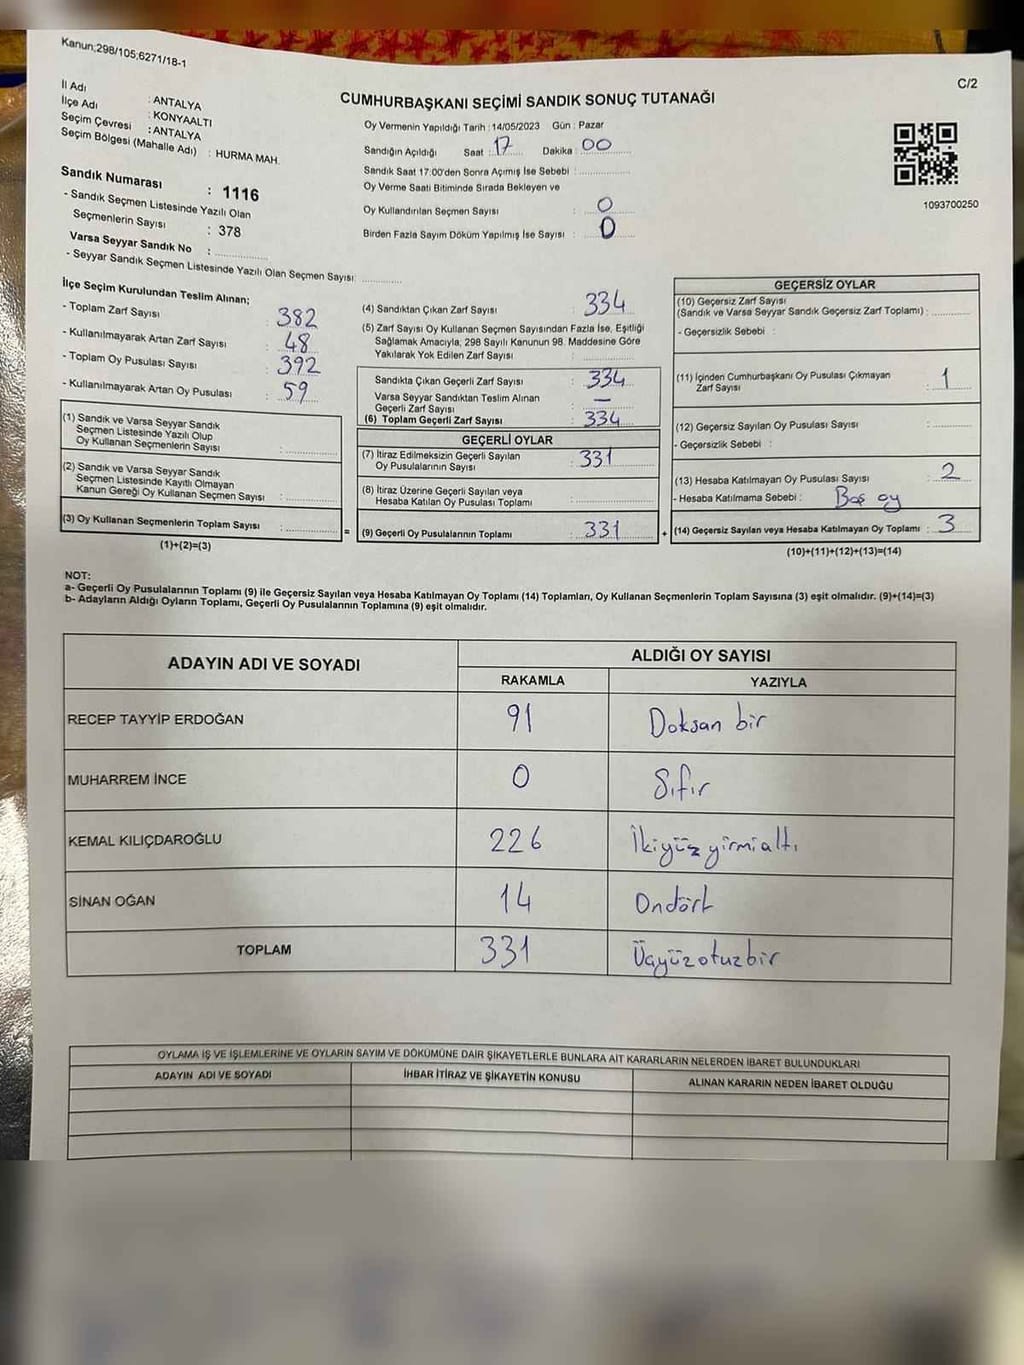 Kanun;298/105;6271/18-1
C/2
İl Adı : ANTALYA
İlçe Adı : KONYAALTI
Seçim Çevresi : ANTALYA
Seçim Bölgesi (Mahalle Adı) : HURMA MAH.
CUMHURBAŞKANI SEÇİMİ SANDIK SONUÇ TUTANAĞI
Oy Vermenin Yapıldığı Tarih : 14/05/2023 Gün : Pazar
Sandığın Açıldığı Saat : 17 Dakika : 00
Sandık Saat 17:00'den Sonra Açımış İse Sebebi :
Oy Verme Saati Bitiminde Sırada Bekleyen ve
Oy Kullandırılan Seçmen Sayısı : 0
Birden Fazla Sayım Döküm Yapılmış İse Sayısı : 0
1093700250
Sandık Numarası : 1116
- Sandık Seçmen Listesinde Yazılı Olan
Seçmenlerin Sayısı : 378
Varsa Seyyar Sandık No :
- Seyyar Sandık Seçmen Listesinde Yazılı Olan Seçmen Sayısı :
İlçe Seçim Kurulundan Teslim Alınan;
- Toplam Zarf Sayısı : 382
- Kullanılmayarak Artan Zarf Sayısı : 48
- Toplam Oy Pusulası Sayısı : 392
- Kullanılmayarak Artan Oy Pusulası : 59
(1) Sandık ve Varsa Seyyar Sandık
Seçmen Listesinde Yazılı Olup
Oy Kullanan Seçmenlerin Sayısı :
(2) Sandık ve Varsa Seyyar Sandık
Seçmen Listesinde Kayıtlı Olmayan
Kanun Gereği Oy Kullanan Seçmen Sayısı :
(3) Oy Kullanan Seçmenlerin Toplam Sayısı : =
(1)+(2)=(3)
(4) Sandıktan Çıkan Zarf Sayısı : 334
(5) Zarf Sayısı Oy Kullanan Seçmen Sayısından Fazla İse, Eşitliği
Sağlamak Amacıyla, 298 Sayılı Kanunun 98. Maddesine Göre
Yakılarak Yok Edilen Zarf Sayısı :
Sandıkta Çıkan Geçerli Zarf Sayısı : 334
Varsa Seyyar Sandıktan Teslim Alınan
Geçerli Zarf Sayısı : —
(6) Toplam Geçerli Zarf Sayısı : 334
GEÇERLİ OYLAR
(7) İtiraz Edilmeksizin Geçerli Sayılan
Oy Pusulalarının Sayısı : 331
(8) İtiraz Üzerine Geçerli Sayılan veya
Hesaba Katılan Oy Pusulası Toplamı :
(9) Geçerli Oy Pusulalarının Toplamı : 331 +
GEÇERSİZ OYLAR
(10) Geçersiz Zarf Sayısı
(Sandık ve Varsa Seyyar Sandık Geçersiz Zarf Toplamı) :
- Geçersizlik Sebebi :
(11) İçinden Cumhurbaşkanı Oy Pusulası Çıkmayan
Zarf Sayısı : 1
(12) Geçersiz Sayılan Oy Pusulası Sayısı :
- Geçersizlik Sebebi :
(13) Hesaba Katılmayan Oy Pusulası Sayısı : 2
- Hesaba Katılmama Sebebi : Boş oy
(14) Geçersiz Sayılan veya Hesaba Katılmayan Oy Toplamı : 3
(10)+(11)+(12)+(13)=(14)
NOT:
a- Geçerli Oy Pusulalarının Toplamı (9) ile Geçersiz Sayılan veya Hesaba Katılmayan Oy Toplamı (14) Toplamları, Oy Kullanan Seçmenlerin Toplam Sayısına (3) eşit olmalıdır. (9)+(14)=(3)
b- Adayların Aldığı Oyların Toplamı, Geçerli Oy Pusulalarının Toplamına (9) eşit olmalıdır.
ADAYIN ADI VE SOYADI ALDIĞI OY SAYISI
RAKAMLA YAZIYLA
RECEP TAYYİP ERDOĞAN 91 Doksan bir
MUHARREM İNCE 0 Sıfır
KEMAL KILIÇDAROĞLU 226 İkiyüz yirmialtı
SİNAN OĞAN 14 Ondört
TOPLAM 331 Üçyüzotuzbir
OYLAMA İŞ VE İŞLEMLERİNE VE OYLARIN SAYIM VE DÖKÜMÜNE DAİR ŞİKAYETLERLE BUNLARA AİT KARARLARIN NELERDEN İBARET BULUNDUKLARI
ADAYIN ADI VE SOYADI İHBAR İTİRAZ VE ŞİKAYETİN KONUSU ALINAN KARARIN NEDEN İBARET OLDUĞU